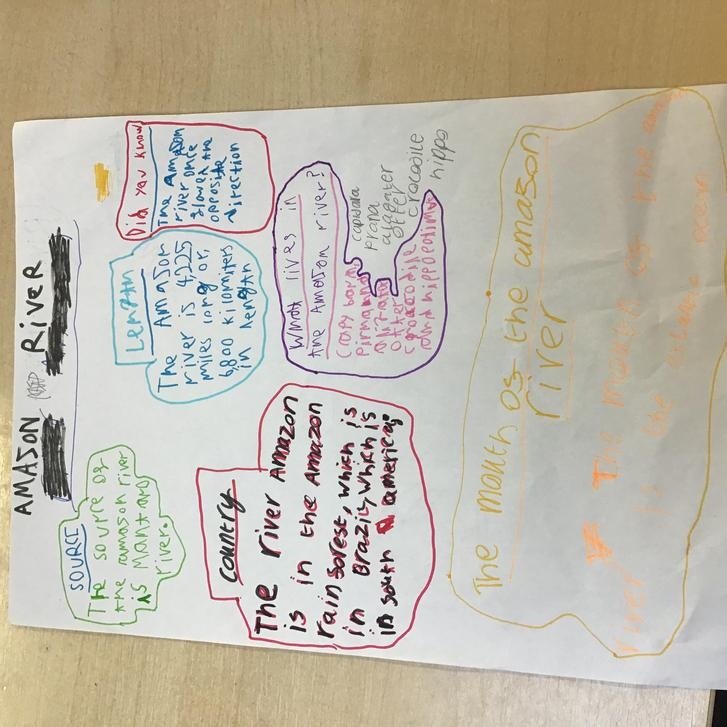 AMASON RIVER
SOURCE
The source of
the amason river
is mantaro
river.
Length
The Amazon
river is 4,225
miles long or,
6,800 kilomiters
in length
Did you know
The Amazon
river once
flowed the
opposite
direction
Country
The river Amazon
is in the Amazon
rainforest, which is
in Brazil, which is
in south america
What lives in
the Amazon river?
Capy bara
pirnana
otter
crocodile
and hippopotimus
capibara
prana
otter
crocodile
hippo
The mouth of the amason
river
The mouth of the
river is the atlantic ocean